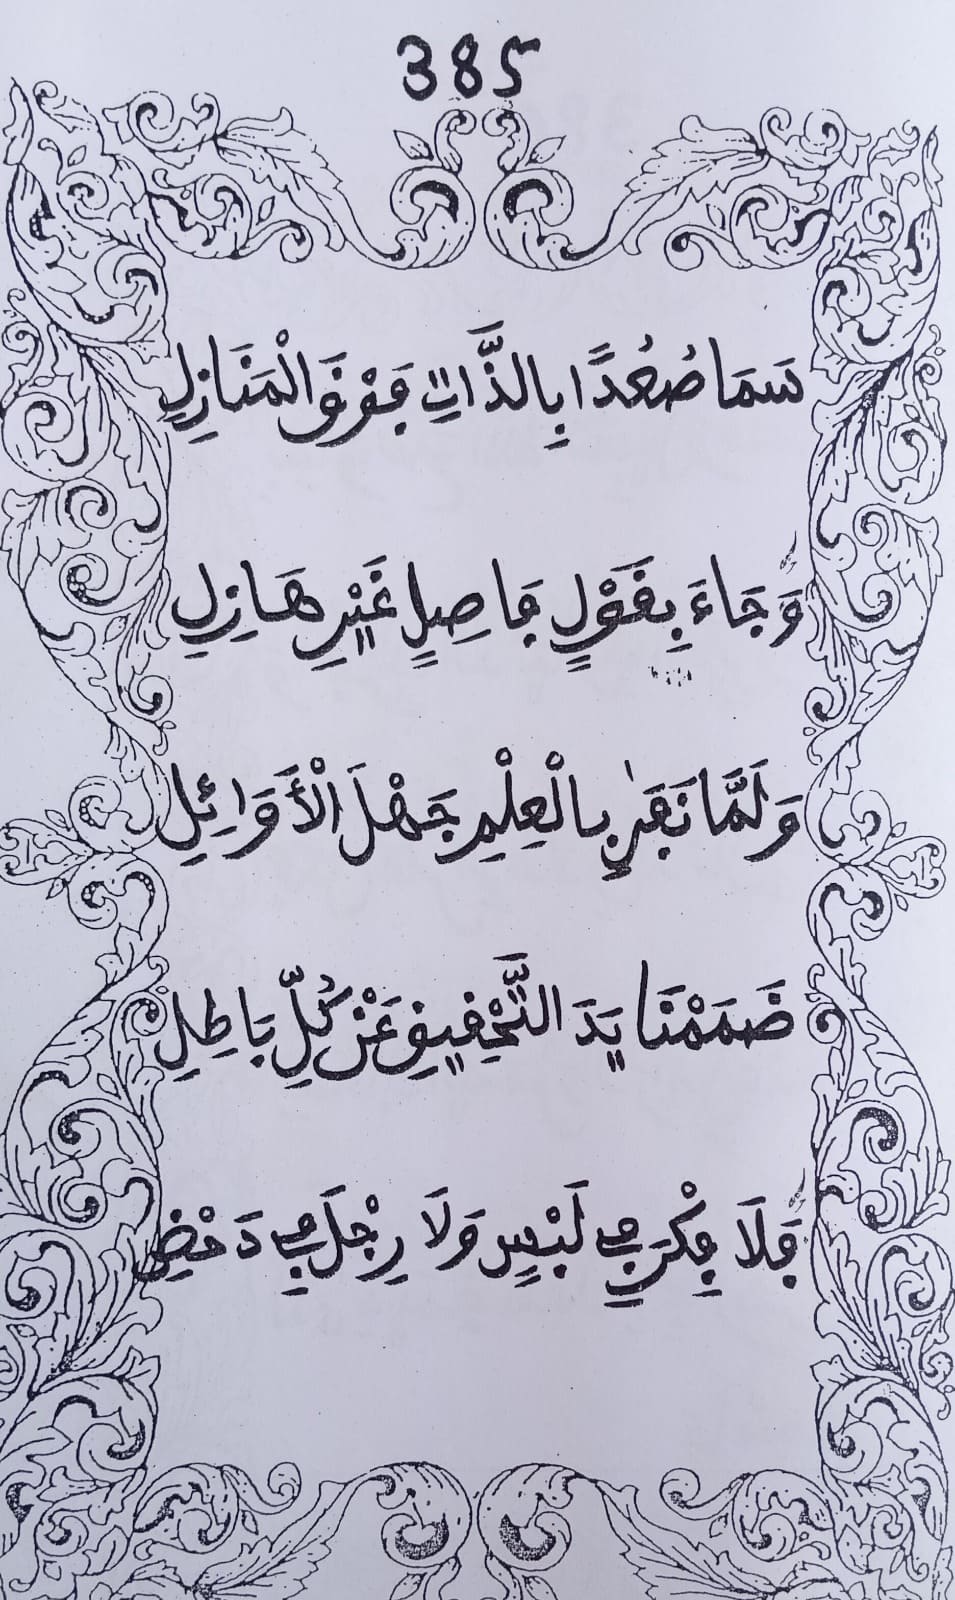 385
سَمَا صُعُدًا بِالذَّاتِ فَوْقَ الْمَنَازِلِ
وَجَاءَ بِقَوْلٍ فَاصِلٍ غَيْرِ هَازِلِ
وَلَمَّا نَفَىٰ بِالْعِلْمِ جَهْلَ الْأَوَائِلِ
ضَمَمْنَا يَدَ التَّحْقِيقِ عَنْ كُلِّ بَاطِلِ
فَلَا فِكْرَ فِي لَبْسٍ وَلَا رِجْلَ فِي دَحْضِ